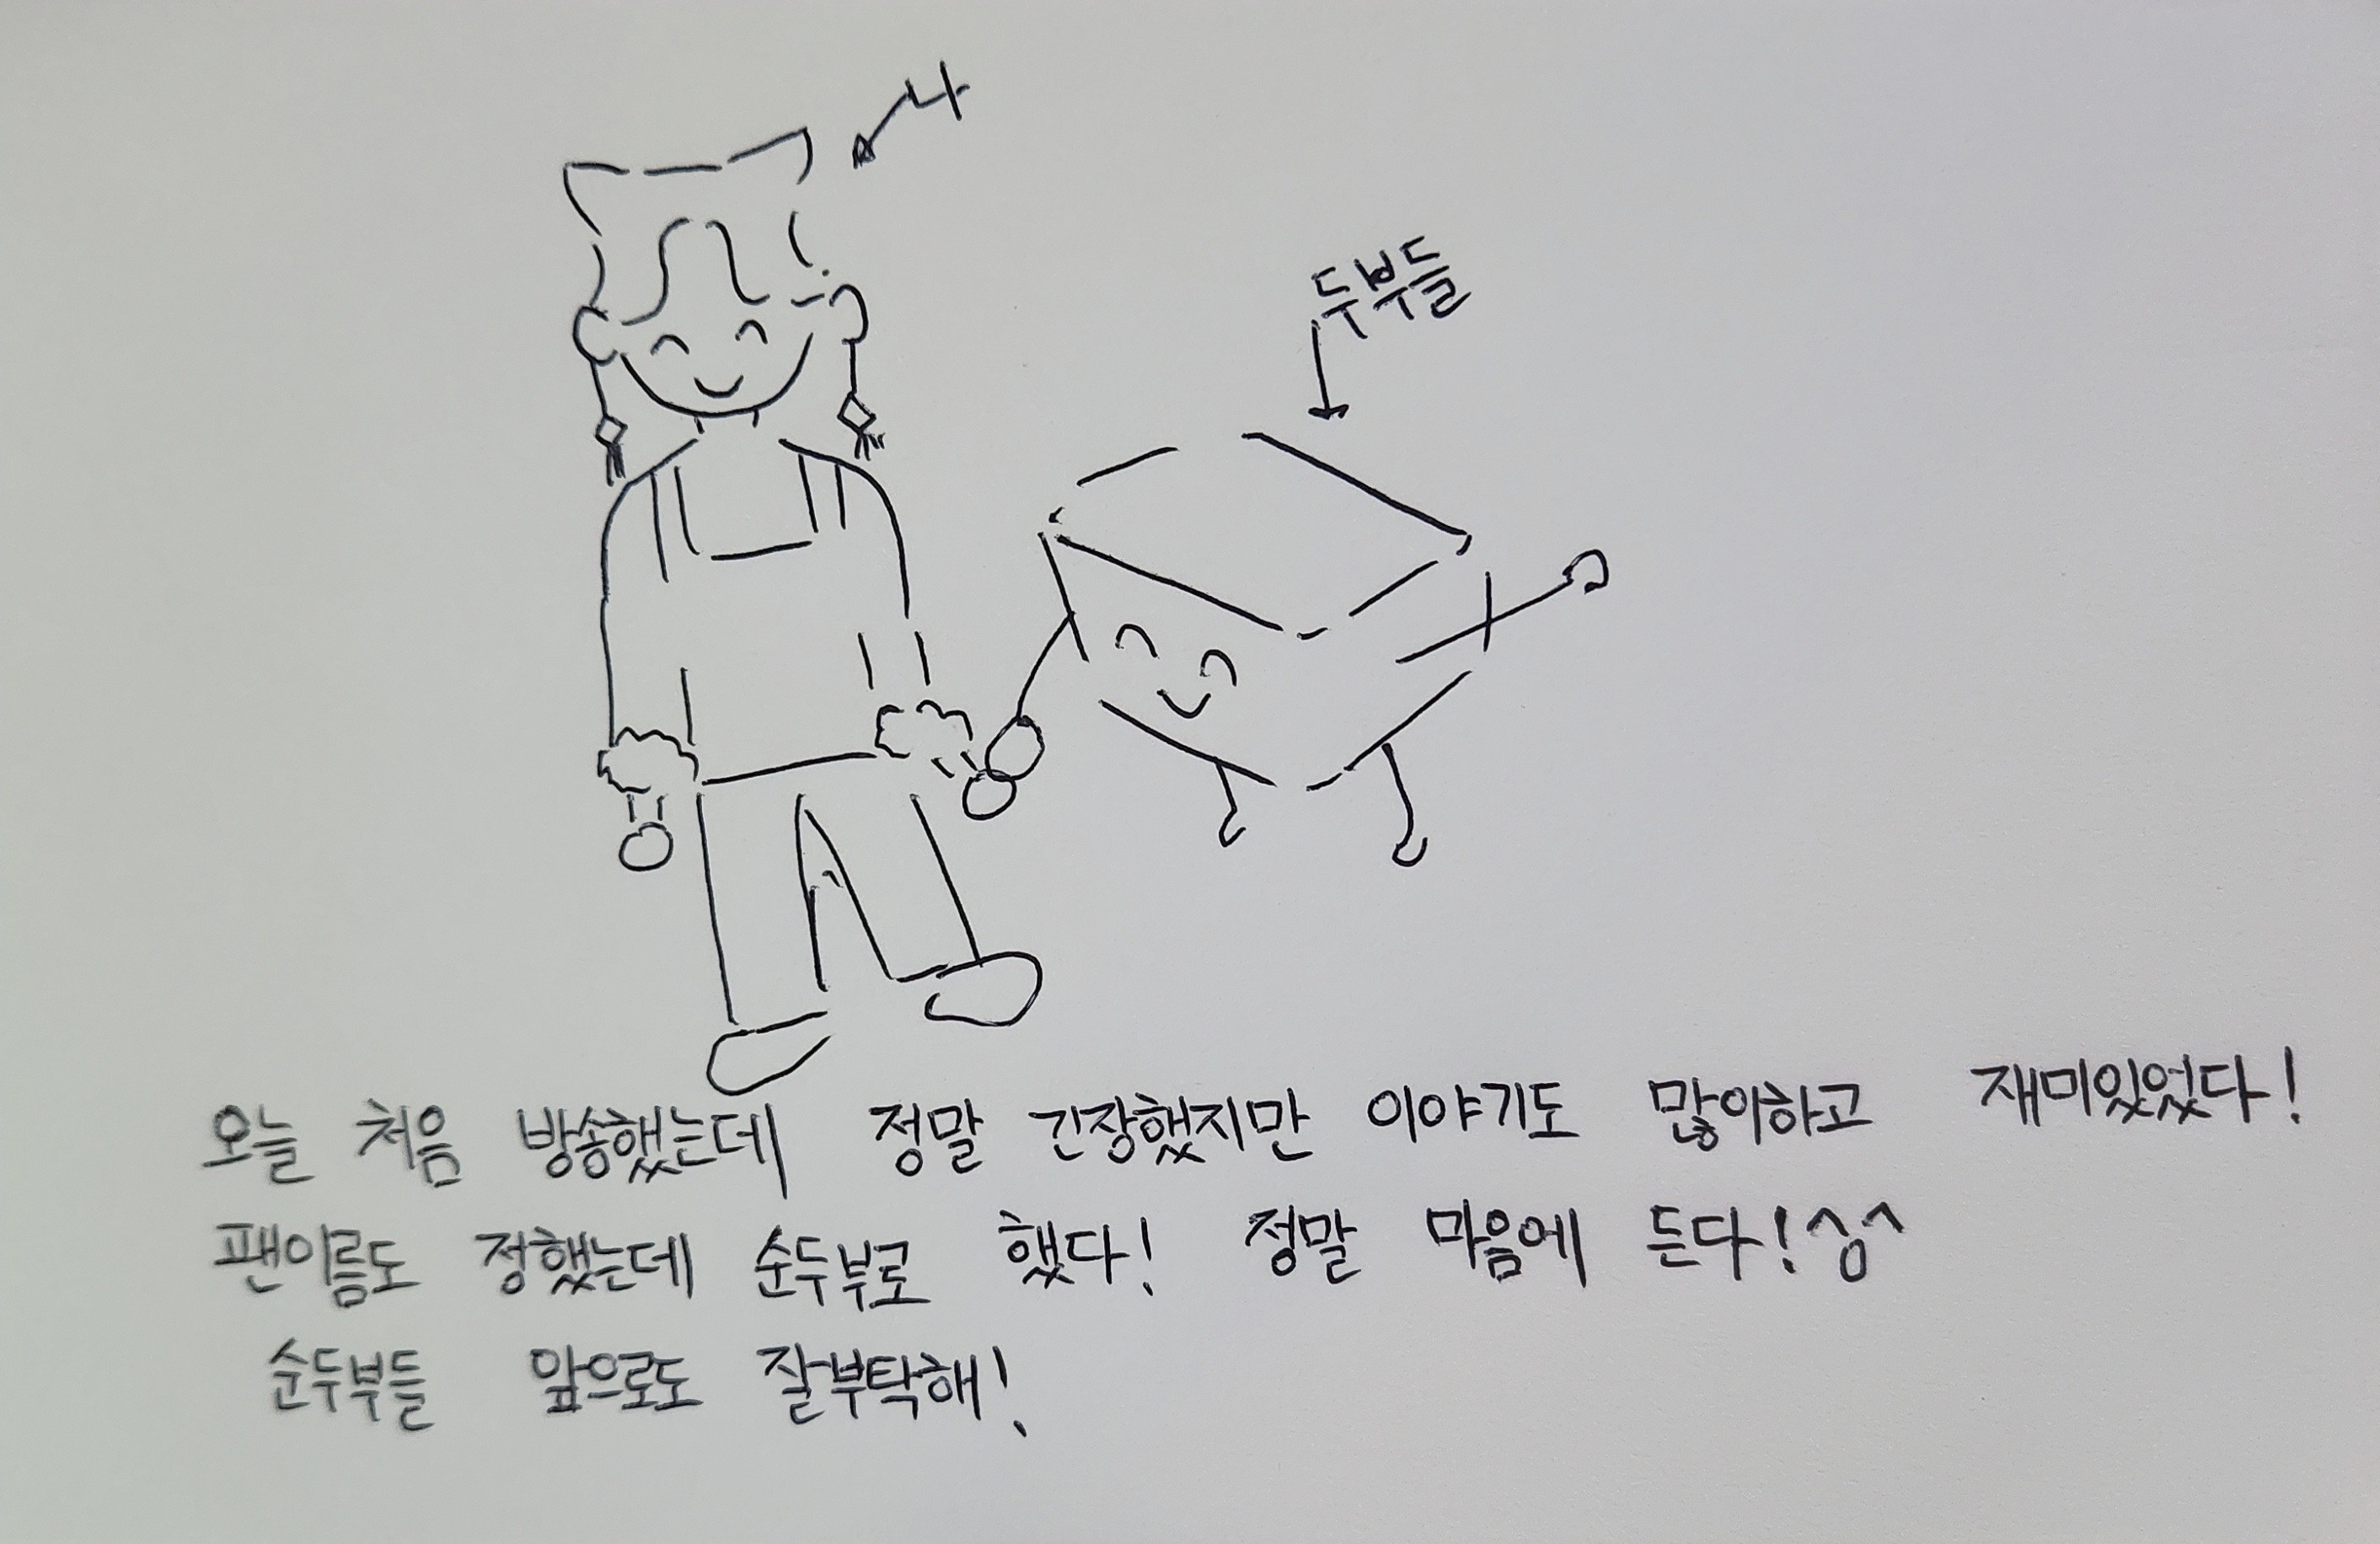 나
두부들
오늘 처음 방송했는데 정말 긴장했지만 이야기도 많이하고 재미있었다!
팬이름도 정했는데 순두부로 했다! 정말 마음에 든다! ^o^
순두부들 앞으로도 잘부탁해!